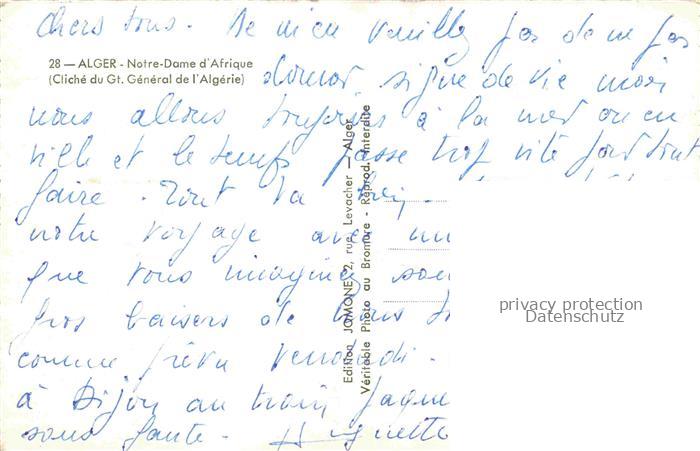 Chers tous. Ne m'en veuillez pas de ne pas
28 — ALGER - Notre-Dame d'Afrique
(Cliché du Gt. Général de l'Algérie)
donner signe de vie mais
nous allons toujours à la mer ou en
ville et le temps passe trop vite pour tout
faire. Tout va bien.
notre voyage avec un
que vous imaginez
gros baisers de nous
comme prévu vendredi.
à Dijon au train
sans faute. Huguette
Edition JOMONE, 2, rue Levacher - Alger
Véritable Photo au Bromure - Reprod. Interdite
privacy protection
Datenschutz